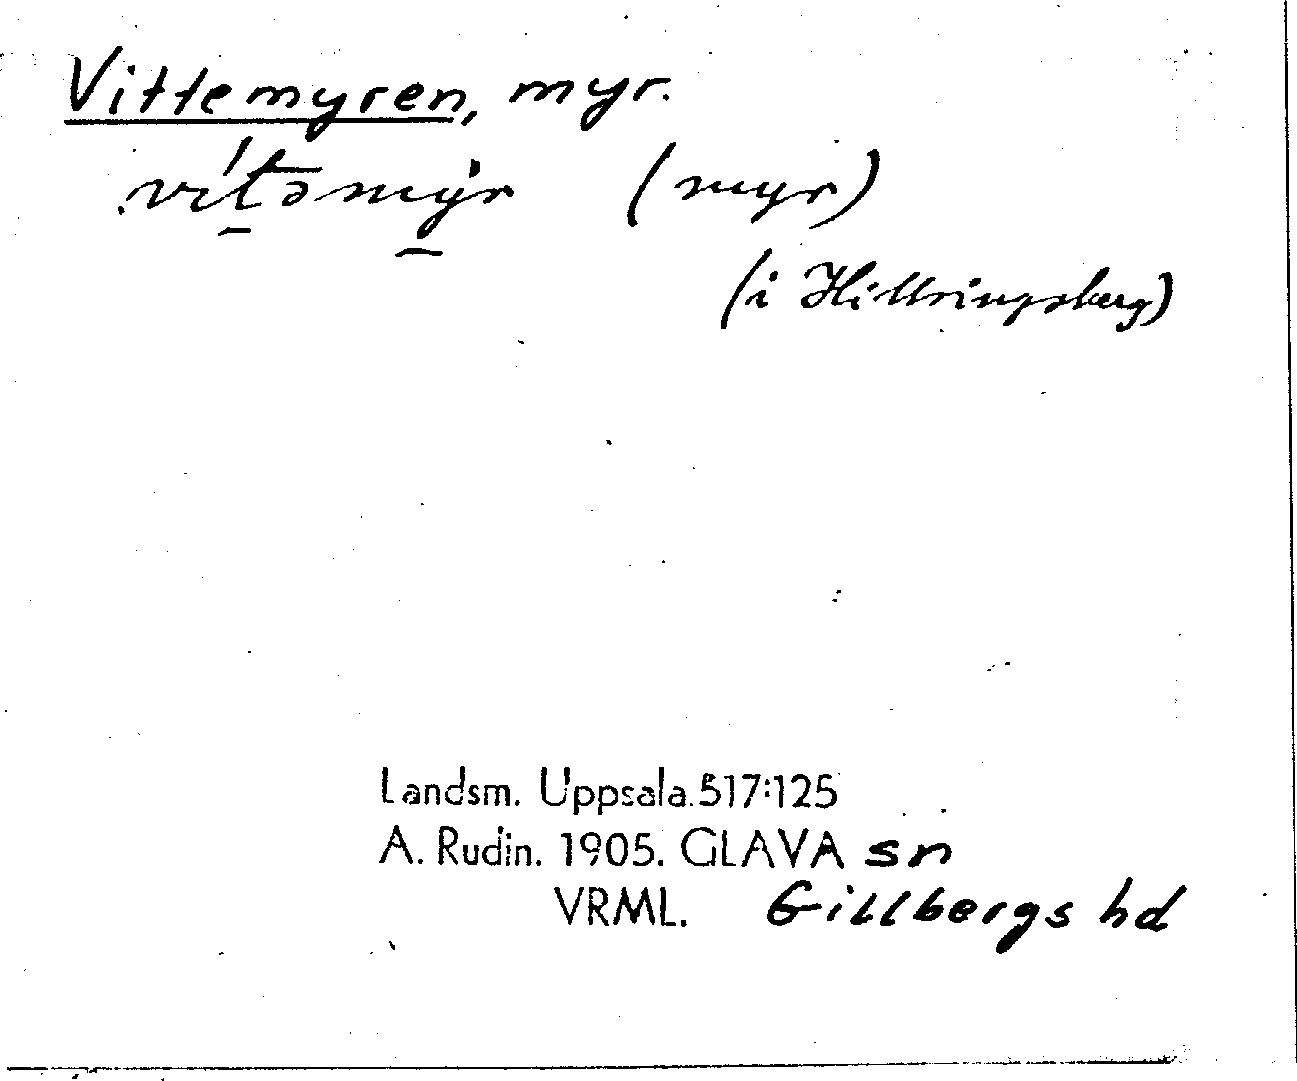 Vittemyren, myr.
vítəmẏr (myr)
(i Hillringsberg)
Landsm. Uppsala.517:125
A. Rudin. 1905. GLAVA sn
VRML. Gillbergs hd